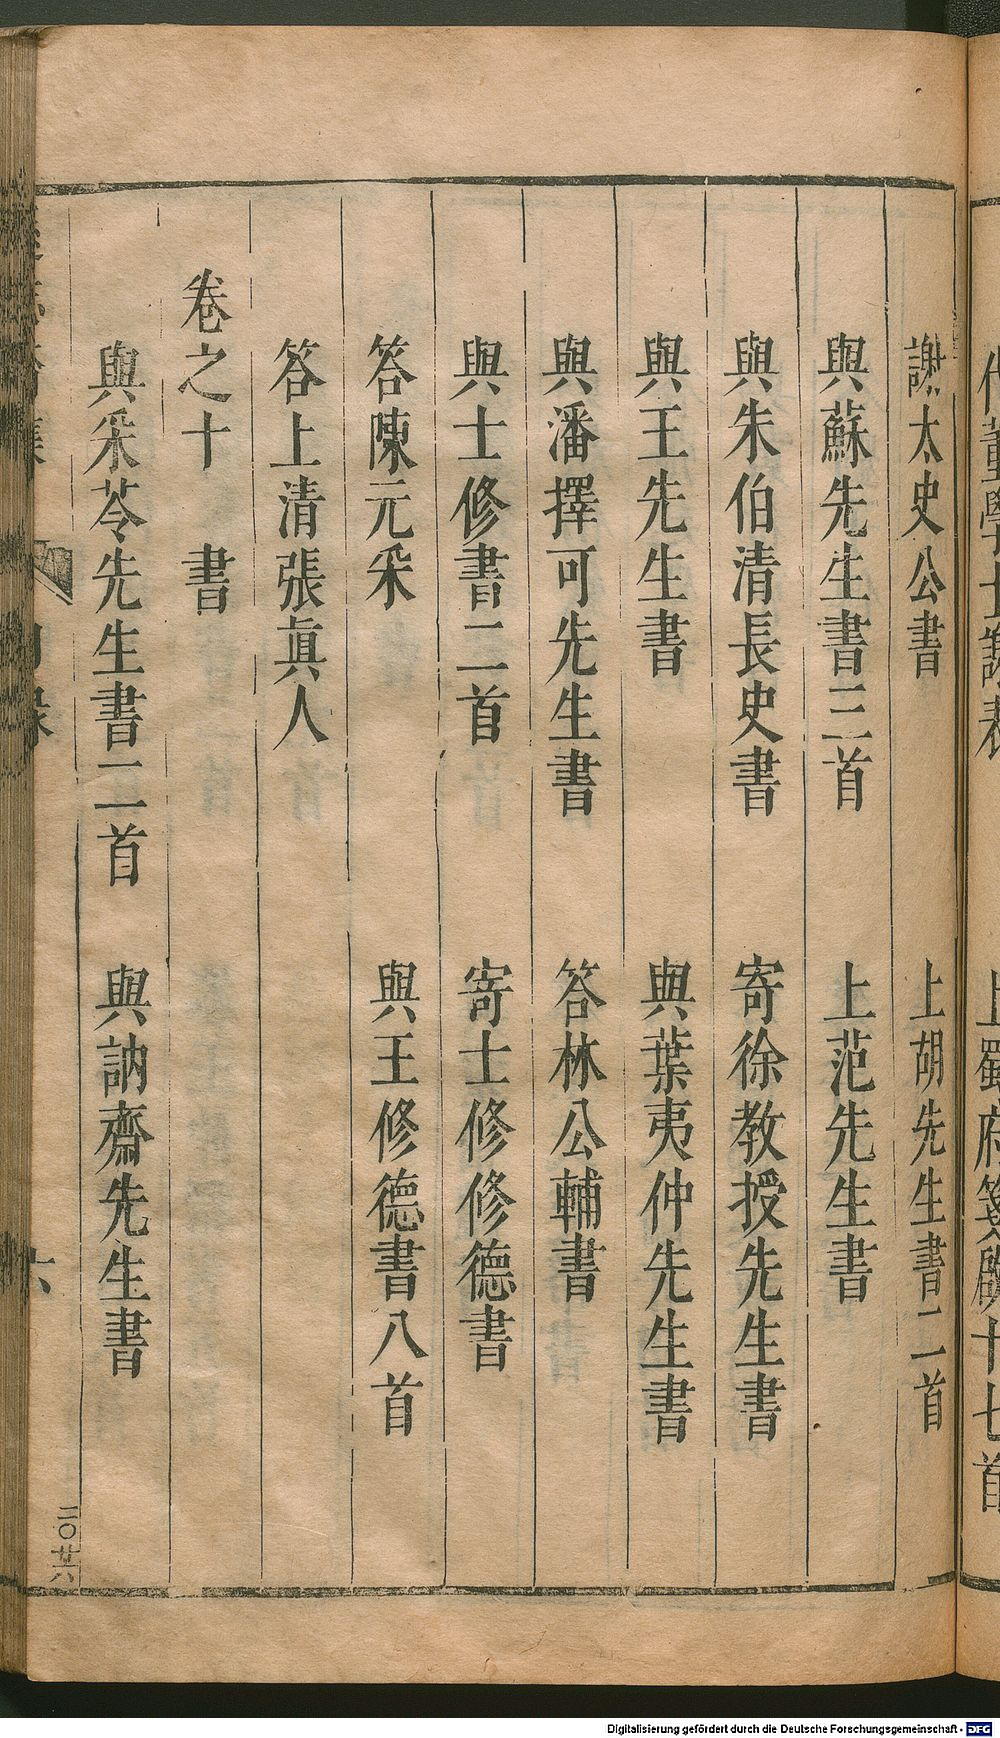 謝太史公書　上胡先生書二首
與蘇先生書三首　上范先生書
與朱伯清長史書　寄徐教授先生書
與王先生書　與葉夷仲先生書
與潘擇可先生書　答林公輔書
與士修書二首　寄士修修德書
答陳元采　與王修德書八首
答上清張真人
卷之十　書
與采苓先生書二首　與訥齋先生書
六
Digitalisierung gefördert durch die Deutsche Forschungsgemeinschaft - DFG